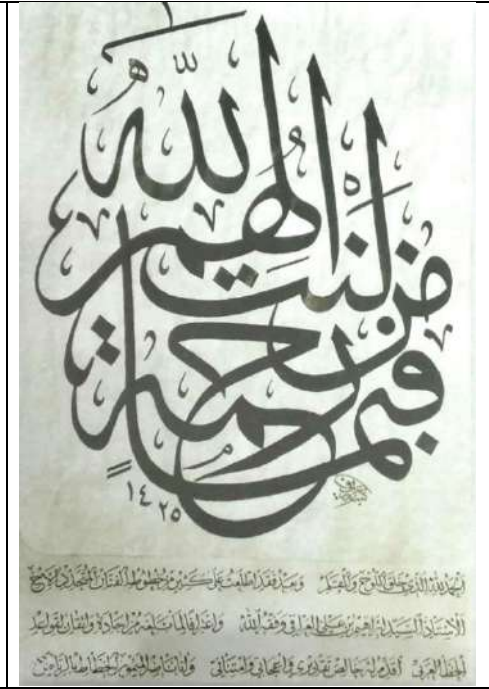 فبما رحمة من الله لنت لهم
١٤٢٥
الحمد لله الذي خلق اللوح والقلم وبعد فقد اطلعت على كثير من خطوط الفنان المجدد الأخ
الأستاذ السيد إبراهيم بن علي العراقي وفقه الله واعترافا لما بلغه من إجادة وإتقان لقواعد
الخط العربي أقدم له خالص تقديري وإعجابي وامتناني وأنا